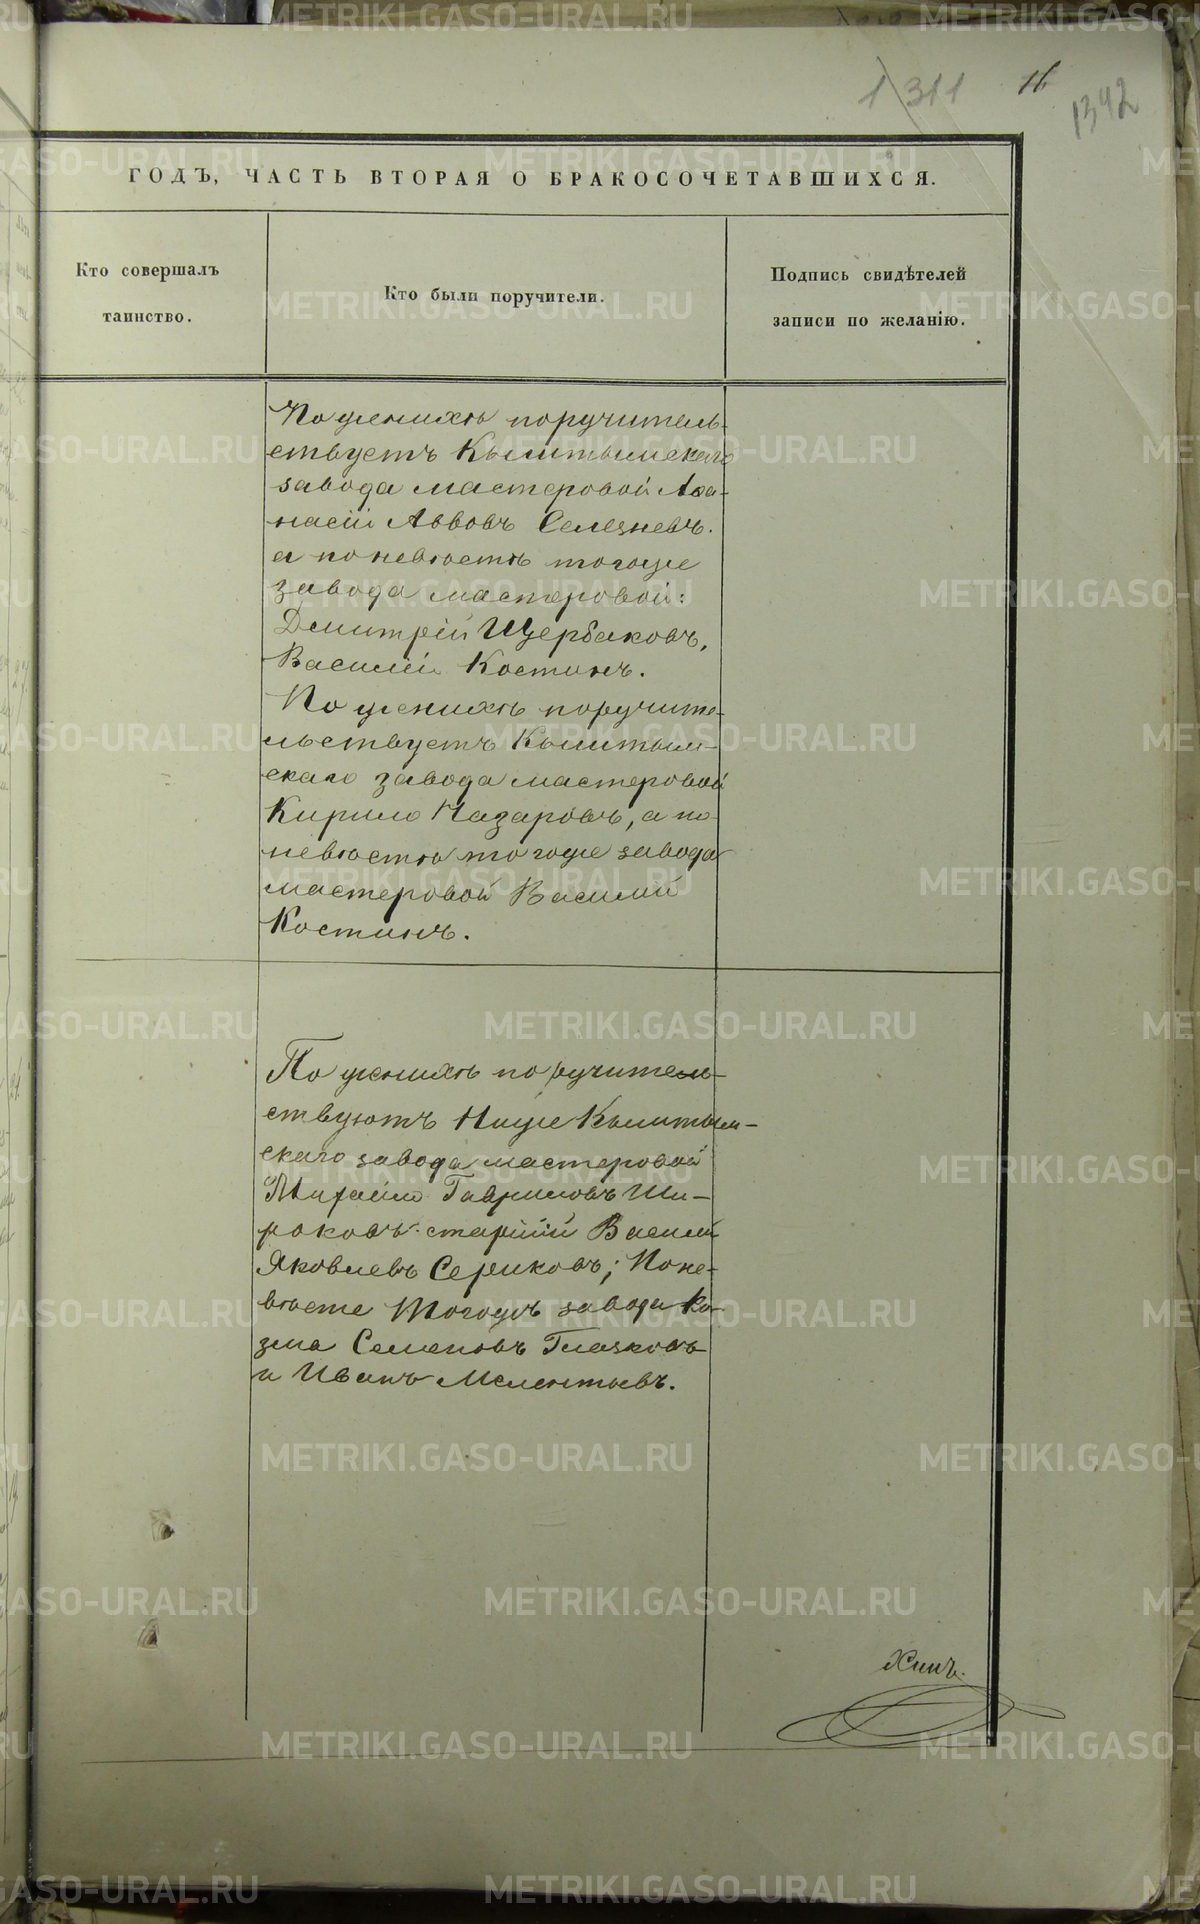 1311 16
1342
ГОДЪ, ЧАСТЬ ВТОРАЯ О БРАКОСОЧЕТАВШИХСЯ.
Кто совершалъ
таинство.
Кто были поручители.
Подпись свидѣтелей
записи по желанію.
По женихѣ поручитель-
ствуетъ Кыштымскаго
завода мастеровой Аѳа-
насій Львовъ Селезневъ.
а по невѣстѣ тогоже
завода мастеровой:
Дмитрій Щербаковъ,
Василій Костинъ.
По женихѣ поручите-
льствуетъ Кыштым-
скаго завода мастеровой
Кирило Назаровъ, а по
невѣстѣ тогоже завода
мастеровой Василій
Костинъ.
По женихѣ поручитель-
ствуютъ Ниже Кыштым-
скаго завода мастеровой
Михаило Гавриловъ Ши-
роковъ старшій Василій
Яковлевъ Сериковъ; По не-
вѣсте Тогожъ завода Ко-
зма Семеновъ Глазковъ
и Иванъ Мелентьевъ.
METRIKI.GASO-URAL.RU